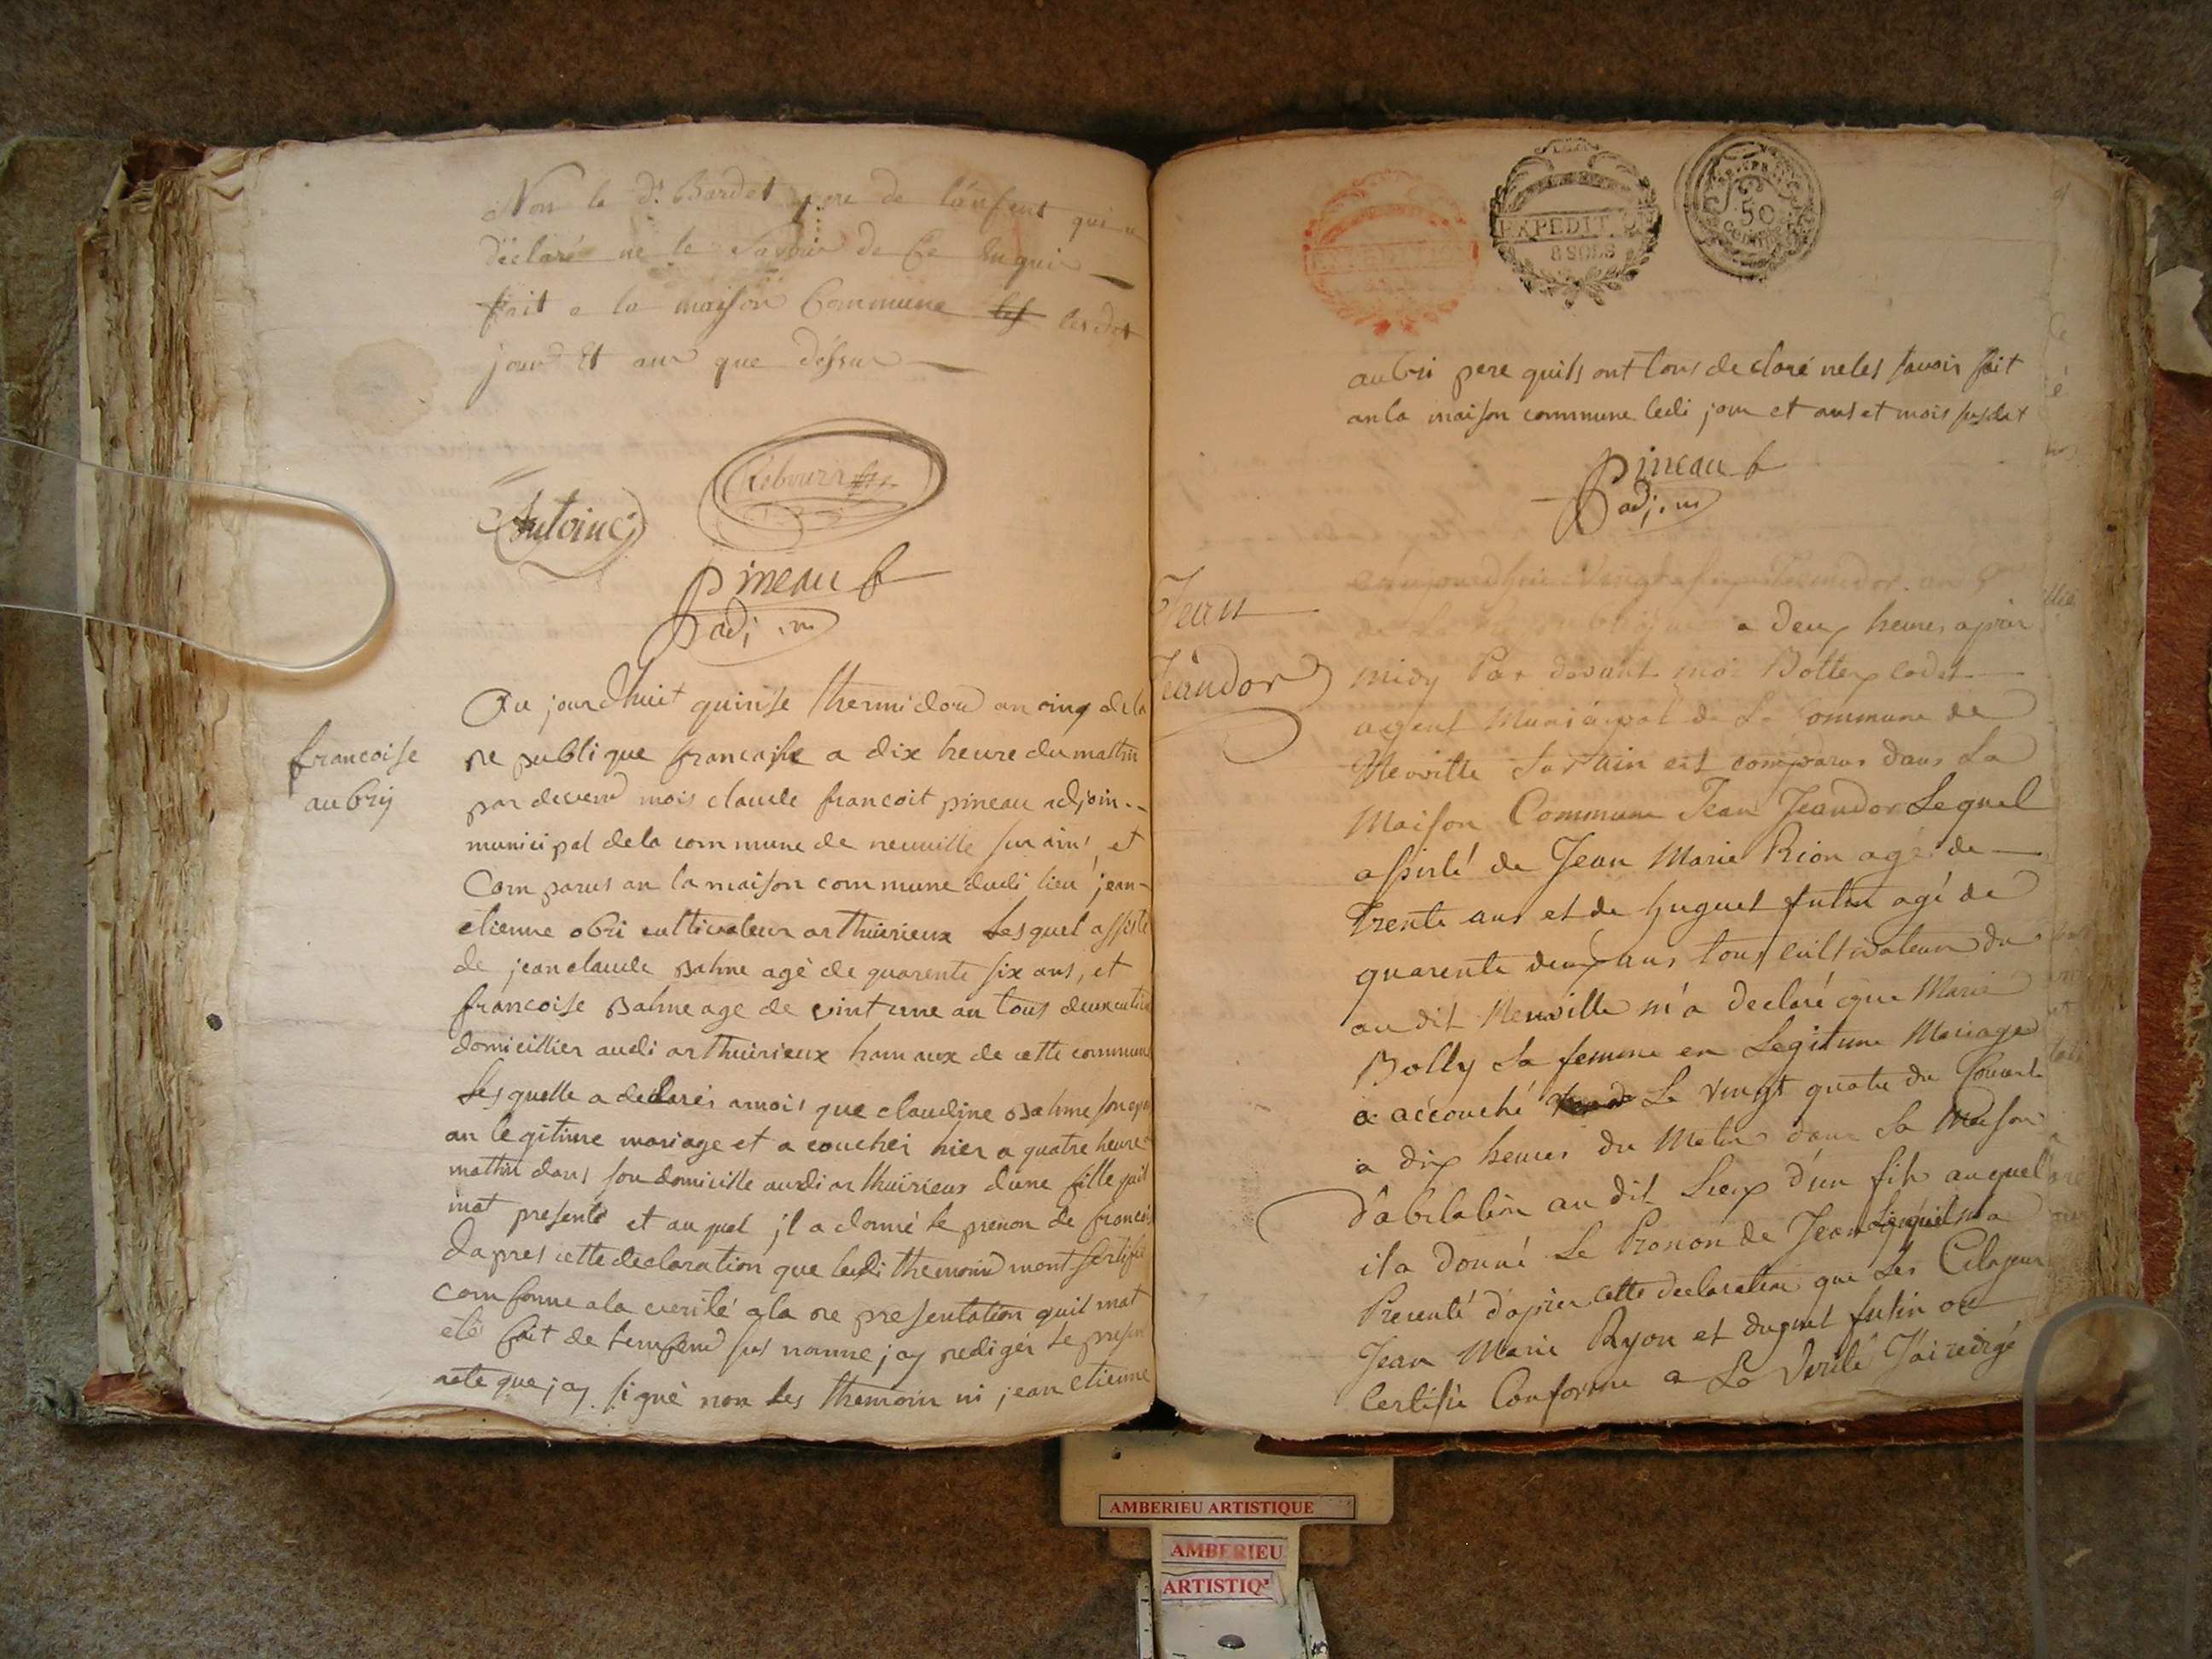 Non le dt. Bardet pere de l'enfent qui a
déclaré ne le savoir de ce enquis
fait a la maison Commune les
jour Et an que déssus
Antoine
Pineau
adj. m
francoise
aubrij
Au jour dhuit quinse thermidor an cinq de la
re publique francaise a dix heure du mattin
par devend mois claude francoit pineau adjoin
municipal de la commune de neuville sur ain, et
Com parus an la maison commune dudi lieu jean
etienne obri cultivateur arthuirieux Lesquel assisté
de jean claude Bahne agè de quarente six ans, et
francoise Bahne age de vint une an tous deux
domicillier audi arthuirieux hamaux de cette commune
Lesquelle a declarés amois que claudine Bahne son
an legitime mariage et a couchei hier a quatre heure
mattin dans son domicille audi arthuirieux dune fille
mat presenté et auquel jl a donné le prenon de
Dapres cette declaration que ledi themoins mont
comforme a la verité a la re presentation quil mat
eté fait de lemfend sus nomme jay redigér le
acte que jay signè non les themoin ni jean etienne
EXPEDIT.ON
8 SOLS
50
aubri pere quils ont tous declaré neles savoir fait
an la maison commune ledi jour et ans et mois susdit
Pineau
adj. m
Jean
Jeandor
aujourdhui vingt Termidor an
a deux heures après
midy Par devant moi Bottex cadet
agent Municipal de La Commune de
Neuville Sur ain est comparus dans La
Maison Commune Jean Jeandor Lequel
assisté de Jean Marie Rion agé de
Trente ans et de huguet futin agé de
quarente deux ans tous cultivateur du
au dit Neuville m'a declaré que Marie
Bolly Sa femme en Legitime Mariage
a accouché Le vingt quatre du Courant
a dix heures du Matin dans Sa Maison
d'abitation au dit Lieux d'un fils auquel
il a donné Le Pronon de Jean Lequel ma
Presenté d'aprés cette declaration que Les Citoyens
Jean Marie Ryon et duguet futin on
Certifié Conforme a La Verité J'ai redigé
AMBERIEU ARTISTIQUE
AMBERIEU
ARTISTIQ